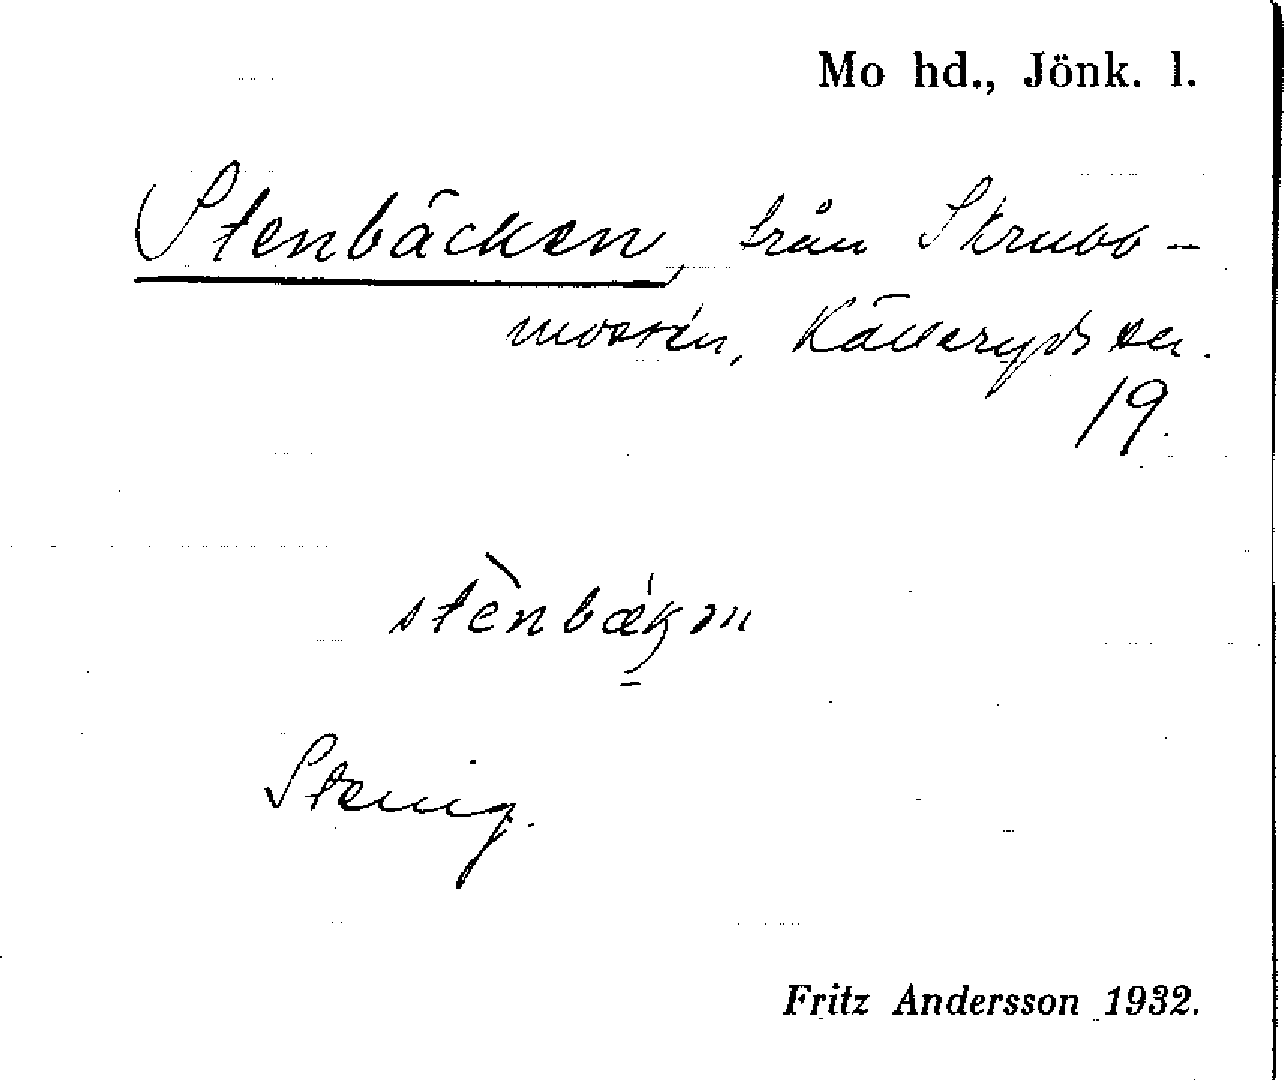 Mo hd., Jönk. l.
Stenbäcken, från Skrubb-
mossen, Källeryds sn.
19.
stènbæ̀kən
Stenig.
Fritz Andersson 1932.